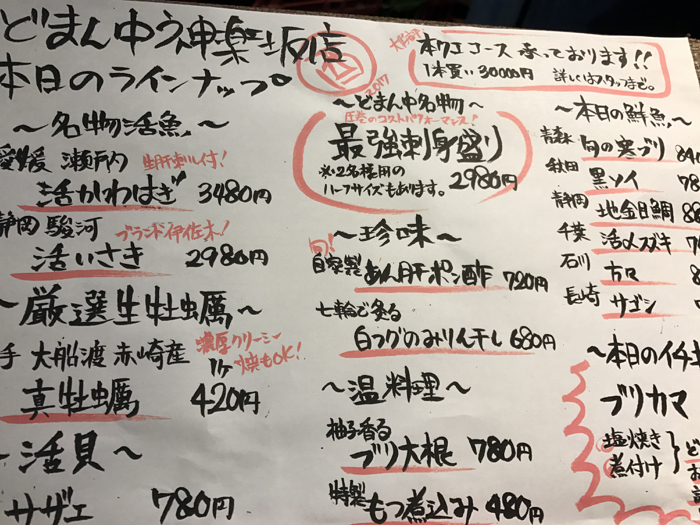 どまん中神楽坂店
本日のラインナップ
2017
本クエコース承っております!!
1本買い30000円 詳しくはスタッフまで。
〜名物活魚〜
愛媛 瀬戸内 生肝刺し付!
活かわはぎ 3480円
静岡 駿河 ブランド伊佐木!
活いさき 2980円
〜厳選生牡蠣〜
手 大船渡 赤崎産 濃厚クリーミー
焼もOK!
真牡蠣 1ヶ 420円
〜活貝〜
サザエ 780円
〜どまん中名物〜
圧巻のコストパフォーマンス!
最強刺身盛り
※2名様用の
ハーフサイズもあります。 2980円
〜珍味〜
旬!
自家製 あん肝ポン酢 720円
七輪で炙る
白フグのみりん干し 680円
〜温料理〜
柚子香る
ブリ大根 780円
特製 もつ煮込み 480円
〜本日の鮮魚〜
青森 旬の寒ブリ
秋田 黒ソイ 78
静岡 地金目鯛
千葉 活メスズキ
石川 カマ
長崎 サゴシ
〜本日のイチ
ブリカマ
塩焼き
煮付け